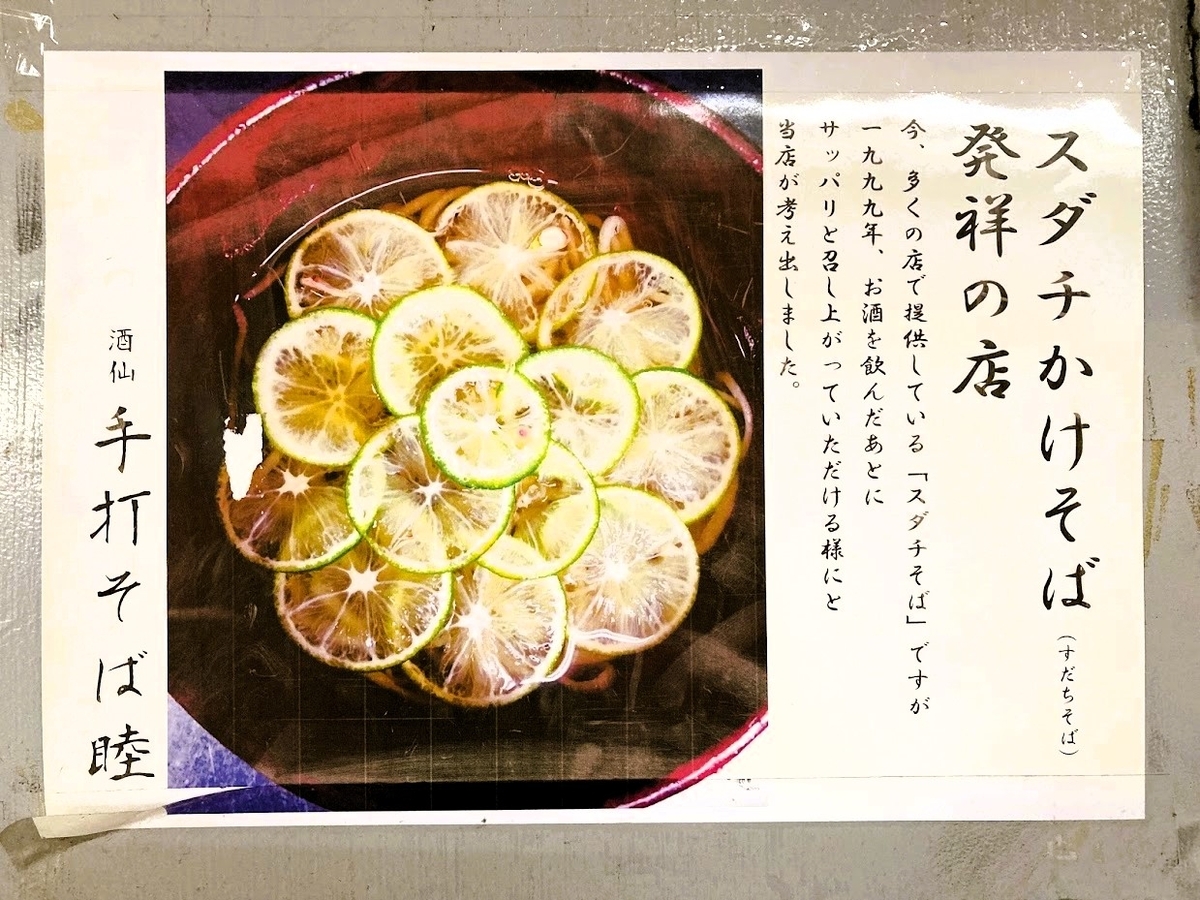 スダチかけそば（すだちそば）
発祥の店
今、多くの店で提供している「スダチそば」ですが
一九九九年、お酒を飲んだあとに
サッパリと召し上がっていただける様にと
当店が考え出しました。
酒仙 手打そば 睦